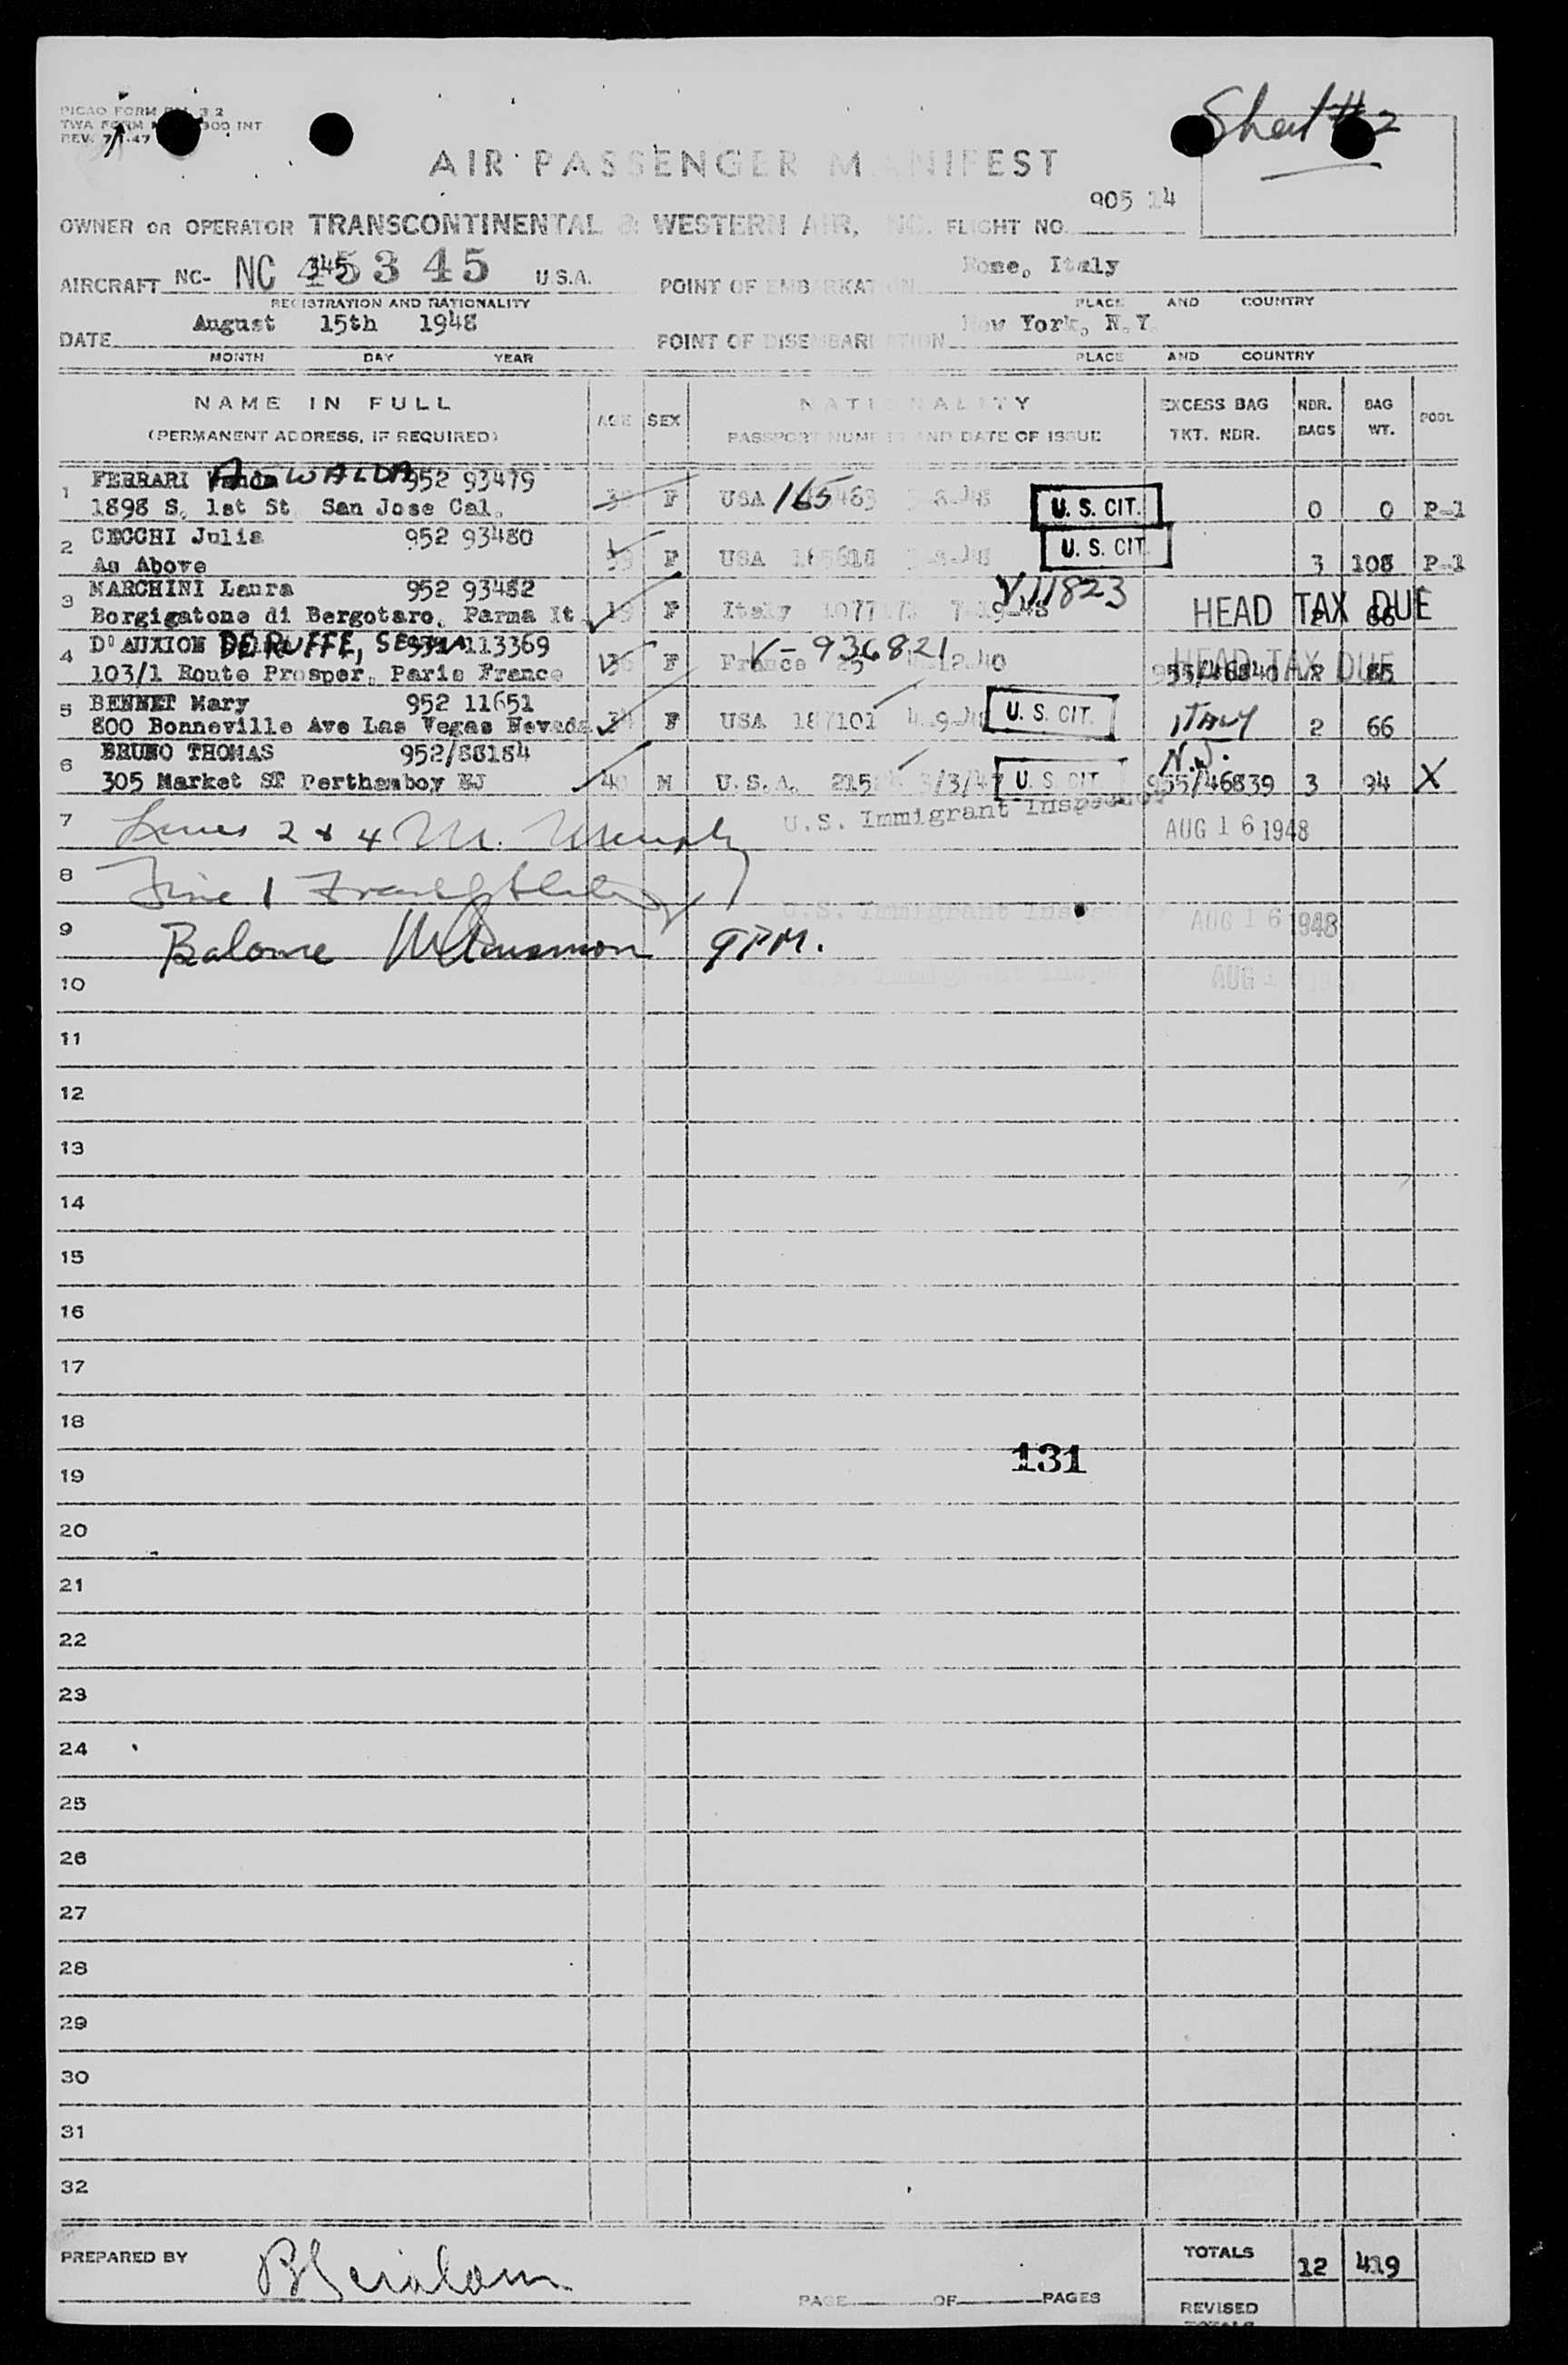 Sheet #2
PICAO FORM 3.2
TWA FORM 300 INT
REV. 7-1-47
AIR PASSENGER MANIFEST
905 14
OWNER OR OPERATOR TRANSCONTINENTAL & WESTERN AIR, INC. FLIGHT NO.
AIRCRAFT NC- NC 45345 U.S.A. POINT OF EMBARKATION Rome, Italy
REGISTRATION AND NATIONALITY PLACE AND COUNTRY
DATE August 15th 1948 POINT OF DISEMBARKATION New York, N.Y.
MONTH DAY YEAR PLACE AND COUNTRY
NAME IN FULL AGE SEX NATIONALITY EXCESS BAG NBR. BAG POOL
(PERMANENT ADDRESS, IF REQUIRED) PASSPORT NUMBER AND DATE OF ISSUE TKT. NBR. BAGS WT.
1 FERRARI WALDA 952 93479
1898 S. 1st St San Jose Cal. F USA 165 U.S. CIT. 0 0 P-1
2 CECCHI Julia 952 93480 U.S. CIT.
As Above F USA 3 108 P-1
3 MARCHINI Laura 952 93482 V111823
Borgigatone di Bergotaro, Parma It 19 F Italy 7-19-48 HEAD TAX DUE 2 66
4 D'AUXION DE RUFFE, 113369 V-936821
103/1 Route Prosper, Paris France F France HEAD TAX DUE 2 85
5 BENNET Mary 952 11651
800 Bonneville Ave Las Vegas Nevada F USA 187101 U.S. CIT. ITALY 2 66
6 BRUNO THOMAS 952/88184 N.J.
305 Market ST Perthamboy NJ 40 M U.S.A. 215 3/3/47 U.S. CIT. 955/46839 3 94 X
7 Lines 2 & 4 M. U.S. Immigrant Inspector AUG 16 1948
8 Line 1
9 Balance 9PM. U.S. Immigrant Inspector AUG 16 1948
10 U.S. Immigrant Inspector AUG
11
12
13
14
15
16
17
18
131
19
20
21
22
23
24
25
26
27
28
29
30
31
32
PREPARED BY TOTALS 12 419
PAGE OF PAGES REVISED
TOTALS